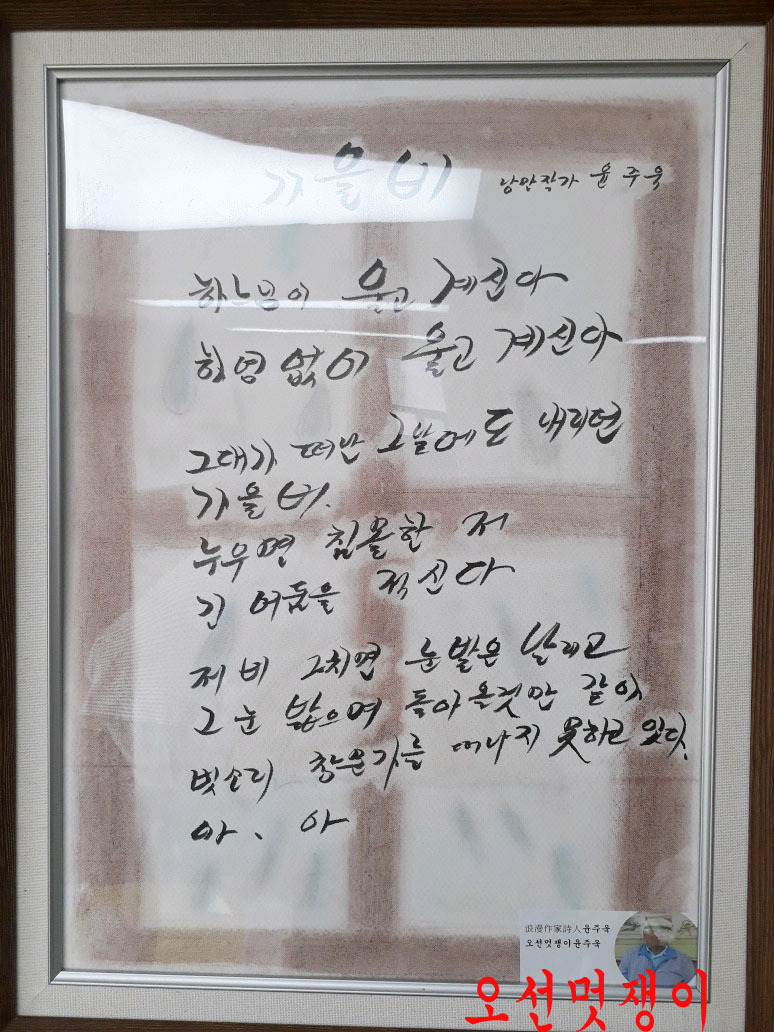 가을비
낭만작가 윤주욱
하느님이 울고 계신다
하염없이 울고 계신다
그대가 떠난 그날에도 내리던
가을비.
누우면 침몰한 저
긴 어둠을 적신다
저 비 그치면 눈발은 날리고
그 눈 밟으며 돌아올것만 같아
빗소리 창문가를 떠나지 못하고 있다.
아、아
浪漫作家詩人윤주욱
오선멋쟁이윤주욱
오선멋쟁이